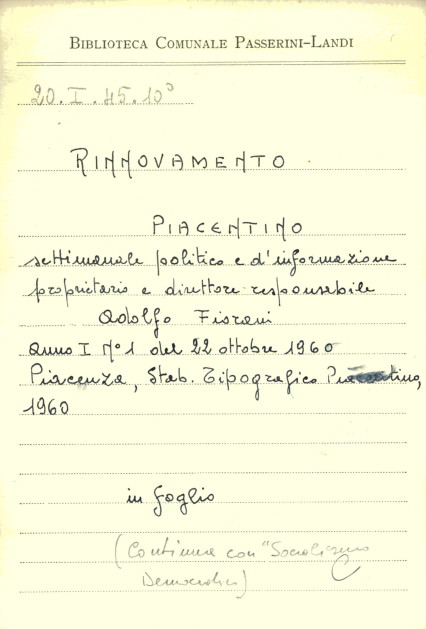 BIBLIOTECA COMUNALE PASSERINI-LANDI
20.I.45.10³
RINNOVAMENTO
PIACENTINO
settimanale politico e d'informazione
proprietario e direttore responsabile
Adolfo Fiorani
Anno I N° 1 del 22 ottobre 1960
Piacenza, Stab. Tipografico Piacentino,
1960
in foglio
(Continua con "Socialismo
Democratico)